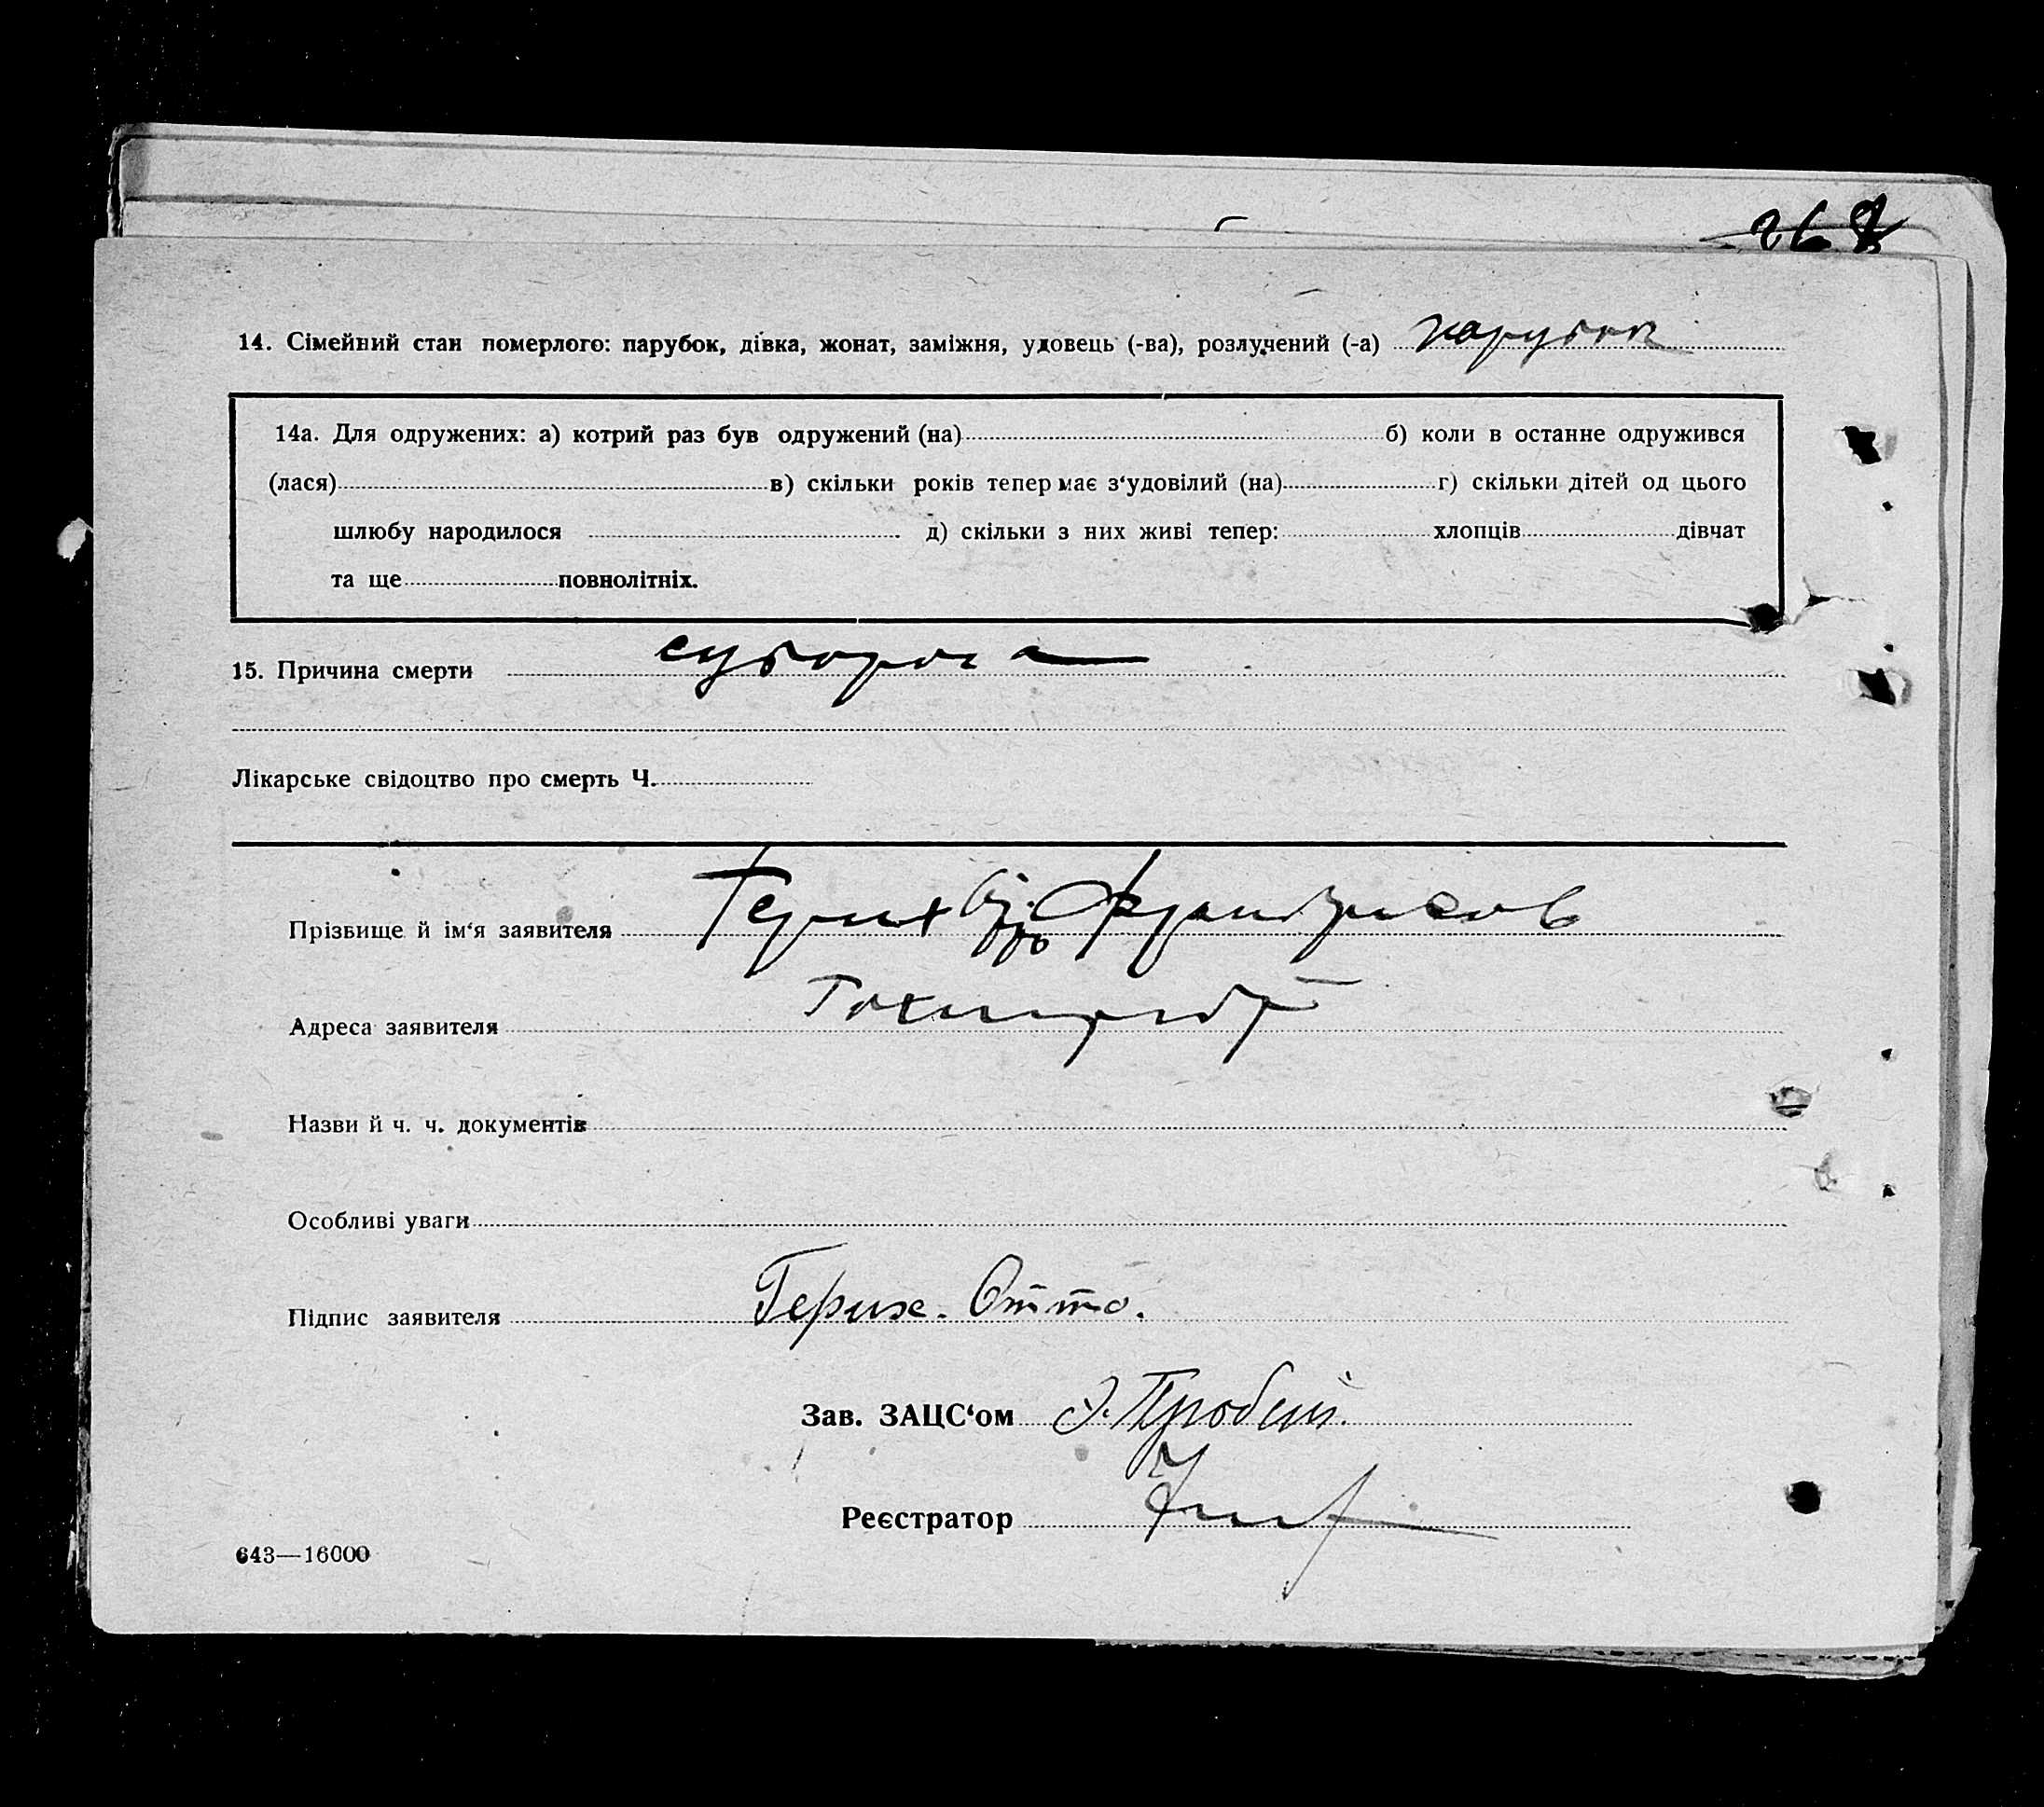 268
14. Сімейний стан померлого: парубок, дівка, жонат, заміжня, удовець (-ва), розлучений (-а) парубок
14а. Для одружених: а) котрий раз був одружений (на) б) коли в останне одружився
(лася) в) скільки років тепер має з‘удовілий (на) г) скільки дітей од цього
шлюбу народилося д) скільки з них живі тепер: хлопців дівчат
та ще повнолітніх.
15. Причина смерти
Лікарське свідоцтво про смерть Ч.
Прізвище й ім‘я заявителя Герих
Адреса заявителя
Назви й ч. ч. документів
Особливі уваги
Підпис заявителя Герих. Отто.
Зав. ЗАЦС‘ом
Реєстратор
643—16000